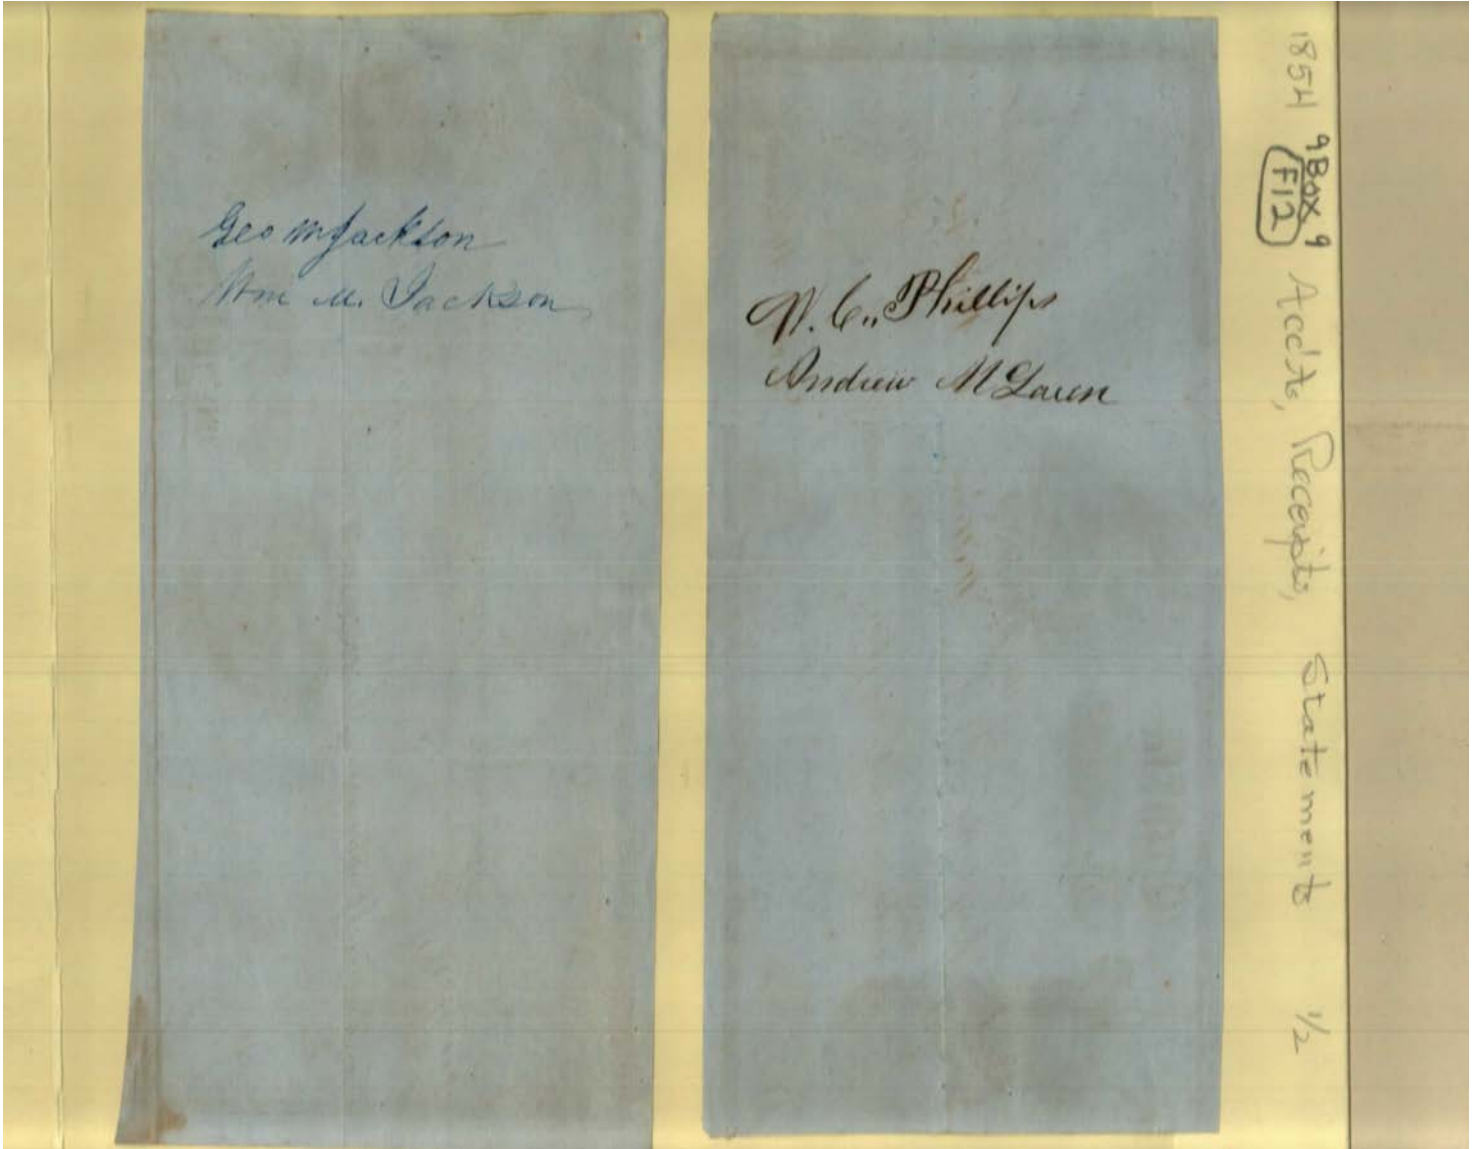 Geo M Jackson
Wm M. Jackson
W. C. Phillips
Andrew McLaren
1854 Box 9 Acc'ts, Receipts, Statements 1/2
F12